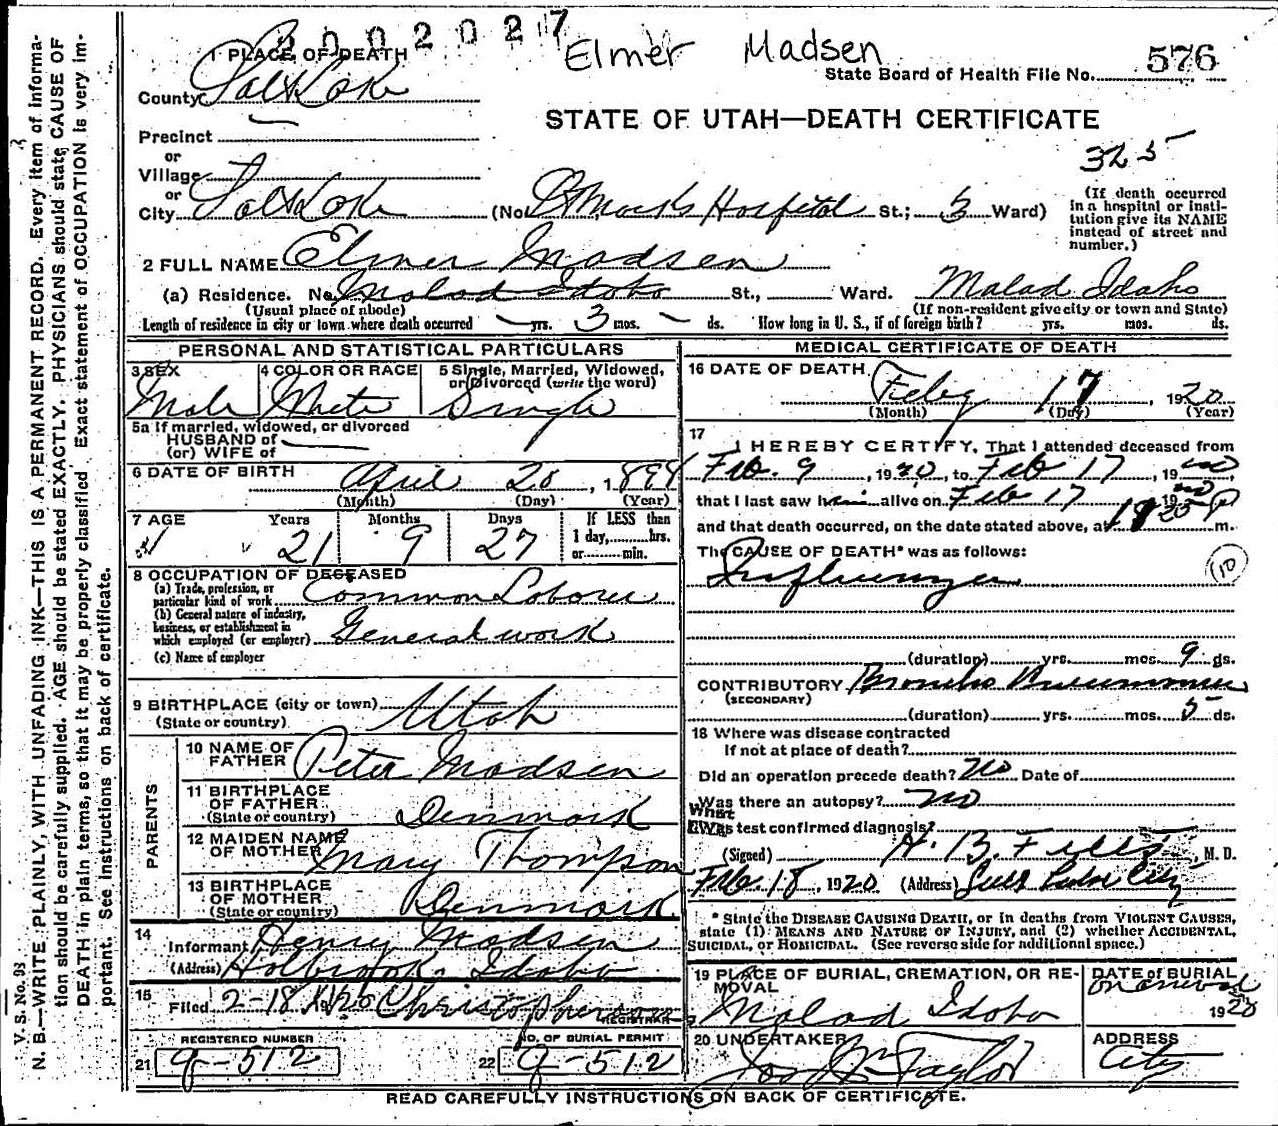 0002027
Elmer Madsen
1 PLACE OF DEATH
State Board of Health File No. 576
County Salt Lake
STATE OF UTAH—DEATH CERTIFICATE
Precinct
325
or
Village
or
City Salt Lake (No. St Marks Hospital St.; 3 Ward)
(If death occurred in a hospital or insti-
tution give its NAME
instead of street and
number.)
2 FULL NAME Elmer Madsen
(a) Residence. No. Malad Idaho St., Ward. Malad Idaho
(Usual place of abode) (If non-resident give city or town and State)
Length of residence in city or town where death occurred — yrs. 3 mos. — ds. How long in U. S., if of foreign birth? yrs. mos. ds.
PERSONAL AND STATISTICAL PARTICULARS
3 SEX Male
4 COLOR OR RACE White
5 Single, Married, Widowed,
or Divorced (write the word)
Single
5a If married, widowed, or divorced
HUSBAND of
(or) WIFE of
6 DATE OF BIRTH April 20, 1898
(Month) (Day) (Year)
7 AGE Years 21 Months 9 Days 27
If LESS than
1 day, hrs.
or min.
8 OCCUPATION OF DECEASED
(a) Trade, profession, or
particular kind of work Common Laborer
(b) General nature of industry,
business, or establishment in
which employed (or employer) General work
(c) Name of employer
9 BIRTHPLACE (city or town) Utah
(State or country)
PARENTS
10 NAME OF
FATHER Peter Madsen
11 BIRTHPLACE
OF FATHER
(State or country) Denmark
12 MAIDEN NAME
OF MOTHER Mary Thompson
13 BIRTHPLACE
OF MOTHER
(State or country) Denmark
14
Informant Henry Madsen
(Address) Holbrook Idaho
15
Filed 2-18 1920 Christopherson
REGISTRAR
REGISTERED NUMBER
21 9-512
NO. OF BURIAL PERMIT
22 9-512
MEDICAL CERTIFICATE OF DEATH
16 DATE OF DEATH
Feby 17, 1920
(Month) (Day) (Year)
17
I HEREBY CERTIFY, That I attended deceased from
Feb. 9, 1920, to Feb 17, 19
that I last saw him alive on Feb 17 19
and that death occurred, on the date stated above, at m.
The CAUSE OF DEATH* was as follows:
Influenza
10
(duration) yrs. mos. 9 ds.
CONTRIBUTORY Broncho Pneumonia
(SECONDARY)
(duration) yrs. mos. 5 ds.
18 Where was disease contracted
if not at place of death?
Did an operation precede death? No Date of
Was there an autopsy? no
What test confirmed diagnosis?
(Signed) A. B., M. D.
Feb 18, 1920 (Address) Salt Lake City
* State the DISEASE CAUSING DEATH, or in deaths from VIOLENT CAUSES,
state (1) MEANS AND NATURE OF INJURY, and (2) whether ACCIDENTAL,
SUICIDAL, or HOMICIDAL. (See reverse side for additional space.)
19 PLACE OF BURIAL, CREMATION, OR RE-
MOVAL
Malad Idaho
DATE of BURIAL
on arrival
1920
20 UNDERTAKER
Jos Wm Taylor
ADDRESS
City
READ CAREFULLY INSTRUCTIONS ON BACK OF CERTIFICATE.
V. S. No. 93
N. B.—WRITE PLAINLY, WITH UNFADING INK—THIS IS A PERMANENT RECORD. Every item of informa-
tion should be carefully supplied. AGE should be stated EXACTLY. PHYSICIANS should state CAUSE OF
DEATH in plain terms, so that it may be properly classified. Exact statement of OCCUPATION is very im-
portant. See instructions on back of certificate.